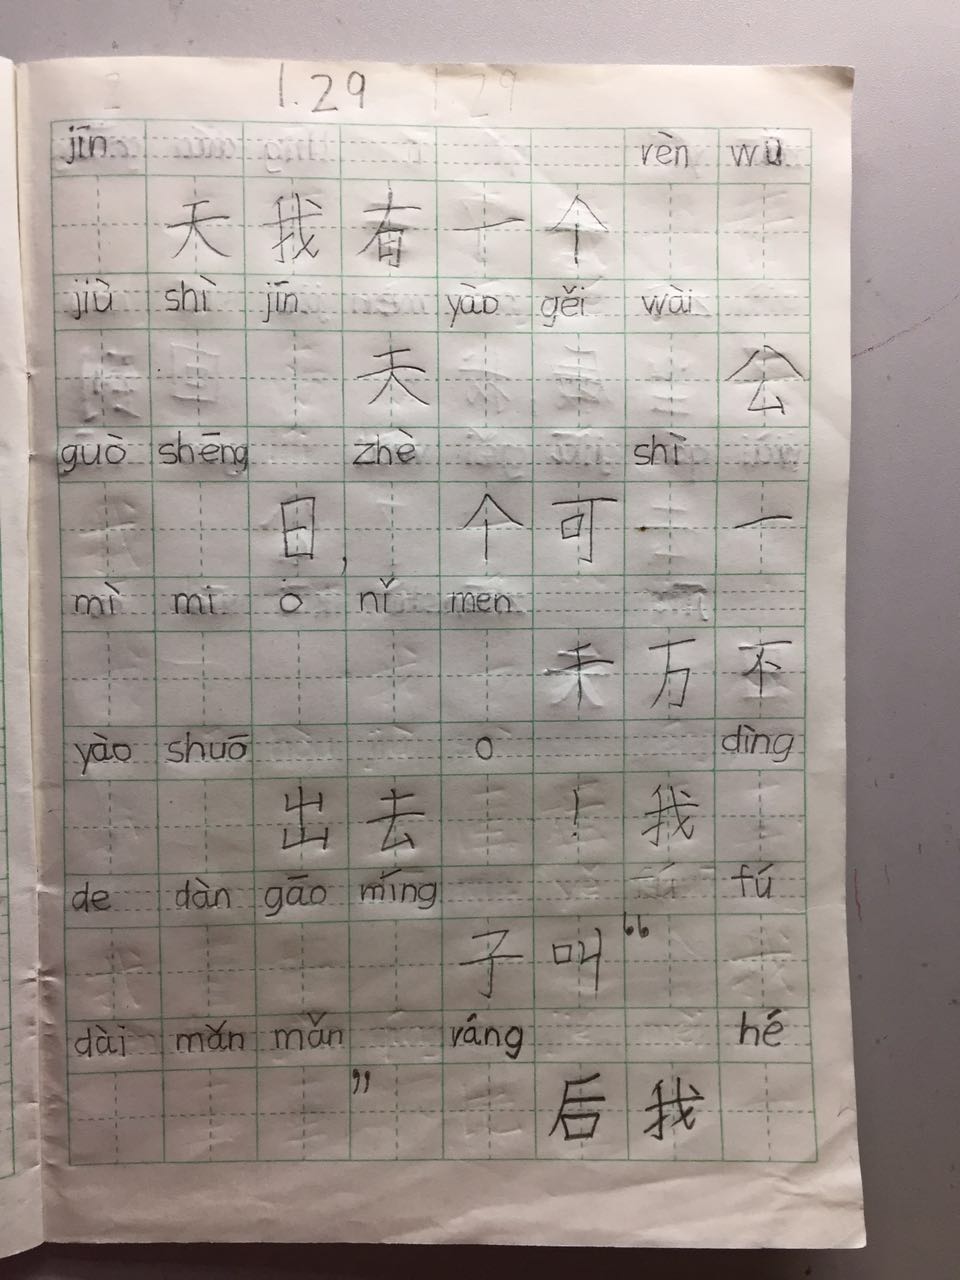 1.29
jīn rèn wù
天我有一个
jiù shì jīn yào gěi wài
天 公
guò shēng zhè shì
日, 个可 一
mì mi o nǐ men
千万不
yào shuō o dìng
出去 ! 我
de dàn gāo míng fú
子叫“
dài mǎn mǎn ráng hé
” 后我